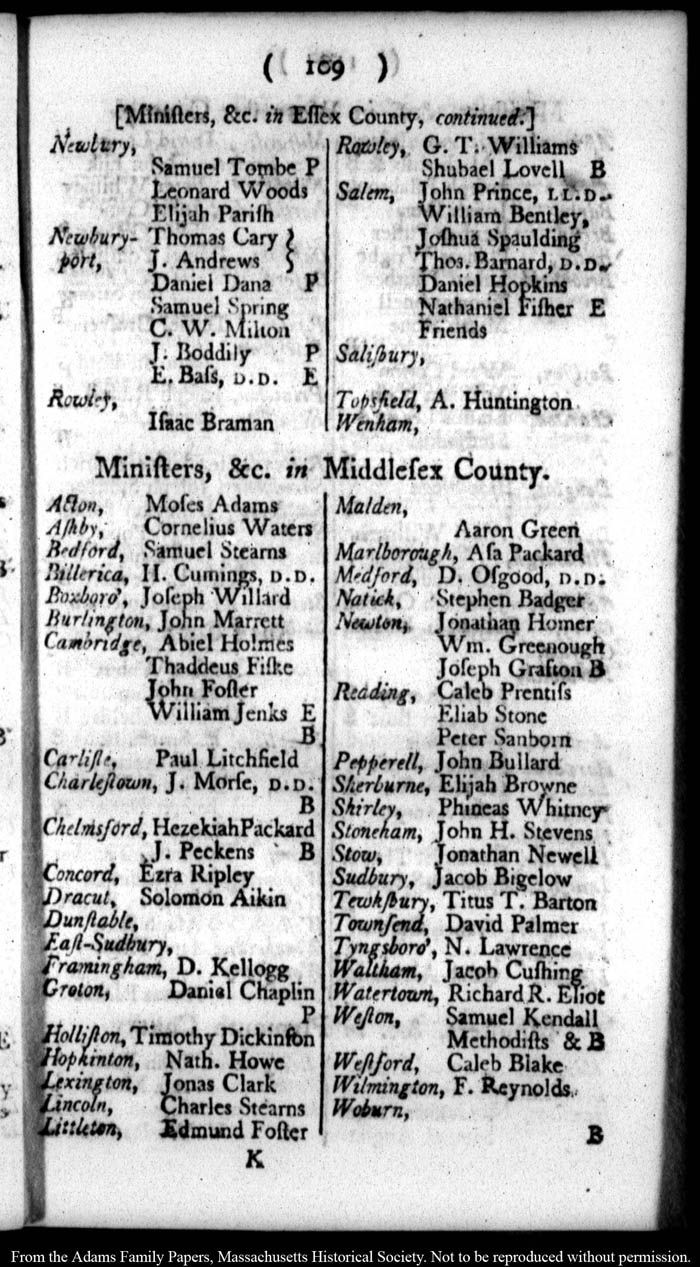 ( 109 )
[Miniſters, &c. in Eſſex County, continued.]
Newbury,
Samuel Tombe P
Leonard Woods
Elijah Pariſh
Newbury- Thomas Cary }
port, J. Andrews }
Daniel Dana P
Samuel Spring
C. W. Milton
J. Boddily P
E. Baſs, D.D. E
Rowley,
Iſaac Braman
Rowley, G. T. Williams
Shubael Lovell B
Salem, John Prince, LL.D.
William Bentley,
Joſhua Spaulding
Thos. Barnard, D.D.
Daniel Hopkins
Nathaniel Fiſher E
Friends
Saliſbury,
Topsfield, A. Huntington
Wenham,
Miniſters, &c. in Middleſex County.
Acton, Moſes Adams
Aſhby, Cornelius Waters
Bedford, Samuel Stearns
Billerica, H. Cumings, D.D.
Boxboro', Joſeph Willard
Burlington, John Marrett
Cambridge, Abiel Holmes
Thaddeus Fiſke
John Foſter
William Jenks E
B
Carliſle, Paul Litchfield
Charleſtown, J. Morſe, D.D.
B
Chelmsford, Hezekiah Packard
J. Peckens B
Concord, Ezra Ripley
Dracut, Solomon Aikin
Dunſtable,
Eaſt-Sudbury,
Framingham, D. Kellogg
Groton, Daniel Chaplin
P
Holliſton, Timothy Dickinſon
Hopkinton, Nath. Howe
Lexington, Jonas Clark
Lincoln, Charles Stearns
Littleton, Edmund Foſter
Malden,
Aaron Green
Marlborough, Aſa Packard
Medford, D. Oſgood, D.D.
Natick, Stephen Badger
Newton, Jonathan Homer
Wm. Greenough
Joſeph Grafton B
Reading, Caleb Prentiſs
Eliab Stone
Peter Sanborn
Pepperell, John Bullard
Sherburne, Elijah Browne
Shirley, Phineas Whitney
Stoneham, John H. Stevens
Stow, Jonathan Newell
Sudbury, Jacob Bigelow
Tewkſbury, Titus T. Barton
Townſend, David Palmer
Tyngsboro', N. Lawrence
Waltham, Jacob Cuſhing
Watertown, Richard R. Eliot
Weſton, Samuel Kendall
Methodiſts & B
Weſtford, Caleb Blake
Wilmington, F. Reynolds
Woburn,
B
K
From the Adams Family Papers, Massachusetts Historical Society. Not to be reproduced without permission.